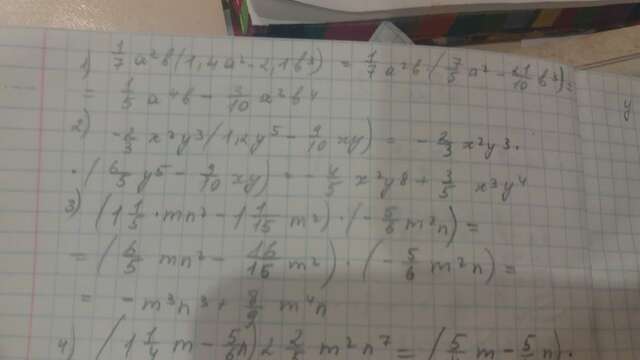 1) 1/7 a²b (1,4a² - 2,1b³) = 1/7 a²b (7/5 a² - 21/10 b³) =
= 1/5 a⁴b - 3/10 a²b⁴
2) -2/3 x²y³ (1,2y⁵ - 9/10 xy) = -2/3 x²y³ ·
· (6/5 y⁵ - 9/10 xy) = -4/5 x²y⁸ + 3/5 x³y⁴
3) (1 1/5 · mn² - 1 1/15 m²) · (-5/6 m²n) =
= (6/5 mn² - 16/15 m²) · (-5/6 m²n) =
= -m³n³ + 8/9 m⁴n
4) (1 1/4 m - 5/6 n) 2 2/5 m²n⁷ = (5/4 m - 5/6 n) ·
y